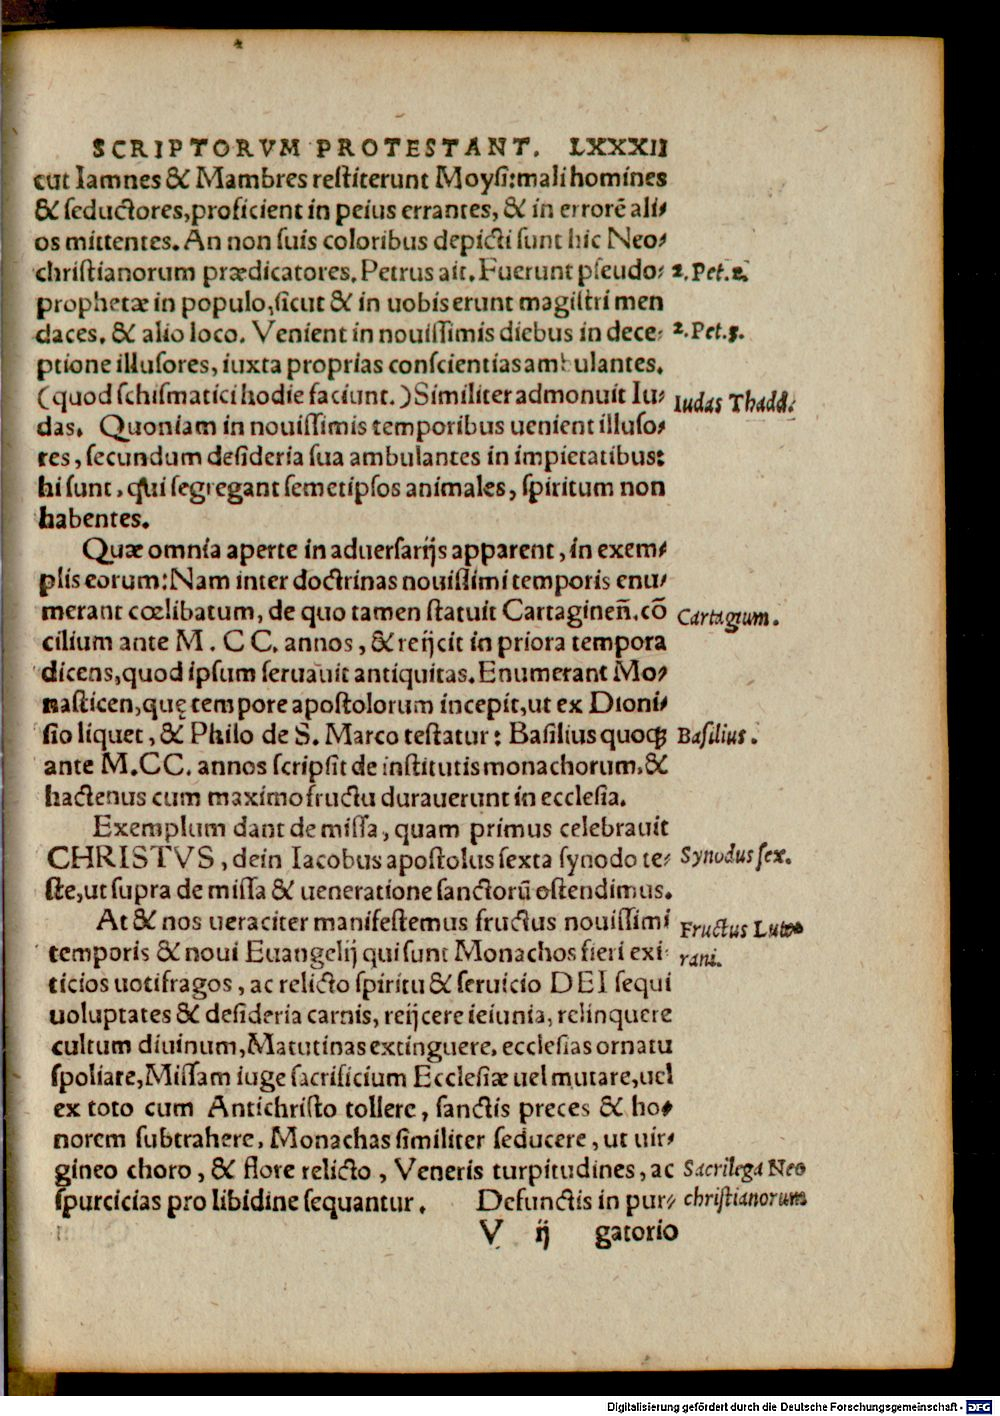 SCRIPTORVM PROTESTANT. LXXXII
cut Iamnes & Mambres restiterunt Moysi: mali homines
& seductores, proficient in peius errantes, & in errorē ali⸗
os mittentes. An non suis coloribus depicti sunt hic Neo⸗
christianorum prædicatores. Petrus ait. Fuerunt pseudo⸗ 2. Pet. 2.
prophetæ in populo, sicut & in uobis erunt magistri men
daces. & alio loco. Venient in nouissimis diebus in dece⸗ 2. Pet. 3.
ptione illusores, iuxta proprias conscientias ambulantes.
(quod schismatici hodie faciunt.) Similiter admonuit Iu⸗ Iudas Thadd.
das. Quoniam in nouissimis temporibus uenient illuso⸗
res, secundum desideria sua ambulantes in impietatibus:
hi sunt, qui segregant semetipsos animales, spiritum non
habentes.
Quæ omnia aperte in aduersarijs apparent, in exem⸗
plis eorum: Nam inter doctrinas nouissimi temporis enu⸗
merant cœlibatum, de quo tamen statuit Cartagineñ. cō Cartagium.
cilium ante M. CC. annos, & reijcit in priora tempora
dicens, quod ipsum seruauit antiquitas. Enumerant Mo⸗
nasticen, quę tempore apostolorum incepit, ut ex Dioni⸗
sio liquet, & Philo de S. Marco testatur: Basilius quoqꝫ Basilius.
ante M. CC. annos scripsit de institutis monachorum, &
hactenus cum maximo fructu durauerunt in ecclesia.
Exemplum dant de missa, quam primus celebrauit
CHRISTVS, dein Iacobus apostolus sexta synodo te⸗ Synodus sex.
ste, ut supra de missa & ueneratione sanctorū ostendimus.
At & nos ueraciter manifestemus fructus nouissimi Fructus Lute
temporis & noui Euangelij qui sunt Monachos fieri exi⸗ rani.
ticios uotifragos, ac relicto spiritu & seruicio DEI sequi
uoluptates & desideria carnis, reijcere ieiunia, relinquere
cultum diuinum, Matutinas extinguere, ecclesias ornatu
spoliare, Missam iuge sacrificium Ecclesiæ uel mutare, uel
ex toto cum Antichristo tollere, sanctis preces & ho⸗
norem subtrahere, Monachas similiter seducere, ut uir⸗
gineo choro, & flore relicto, Veneris turpitudines, ac Sacrilega Neo
spurcicias pro libidine sequantur. Defunctis in pur⸗ christianorum
V ij gatorio
Digitalisierung gefördert durch die Deutsche Forschungsgemeinschaft - DFG